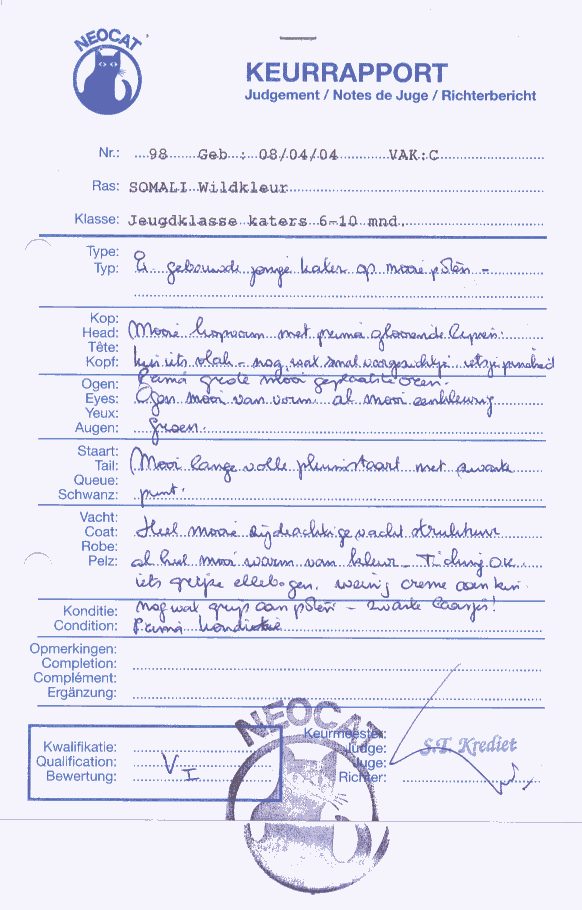 NEOCAT
KEURRAPPORT
Judgement / Notes de Juge / Richterbericht
Nr.: 98 Geb : 08/04/04 VAK:C
Ras: SOMALI Wildkleur
Klasse: Jeugdklasse katers 6-10 mnd.
Type:
Typ: gebouwde jonge kater op mooie poten -
Kop:
Head: Mooie kopvorm met prima glooiende lijnen.
Tête:
Kopf: kin iets vlak - nog wat smal voorgezichtje
Prima grote mooi geplaatste oren.
Ogen:
Eyes: Ogen mooi van vorm al mooi eenkleurig
Yeux:
Augen: groen.
Staart:
Tail: Mooi lange volle pluimstaart met zwarte
Queue:
Schwanz: punt.
Vacht:
Coat: Heel mooie zijdeachtige vacht struktuur
Robe:
Pelz: al heel mooi warm van kleur - Ticking OK
iets grijze ellebogen, weinig creme aan kin
nog wat grijs aan poten - zwarte laarsjes!
Konditie:
Condition: Prima konditie
Opmerkingen:
Completion:
Complément:
Ergänzung:
Kwalifikatie:
Qualification: V I
Bewertung:
Keurmeester:
Judge: S.T. Krediet
Juge:
Richter:
NEOCAT